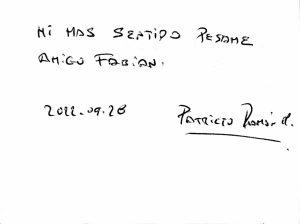 MI MAS SENTIDO PESAME
AMIGO FABIAN.
2022.09.28
PATRICIO